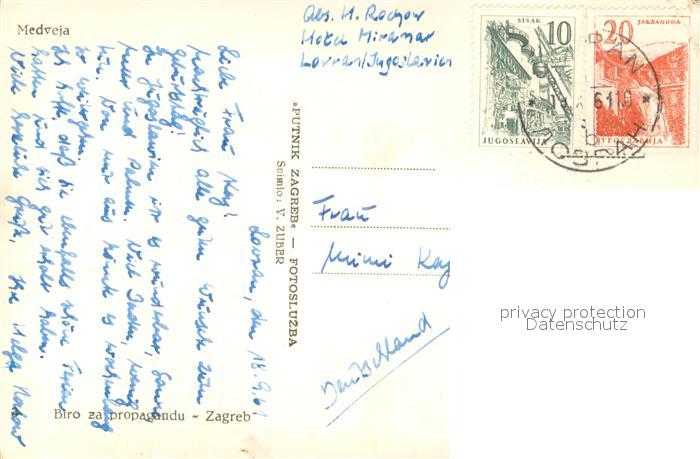 Medveja
Abs. H. Rochow
Hotel Miramar
Lovran/Jugoslavien
SISAK
10
JUGOSLAVIJA
JABLANICA
20
JUGOSLAVIJA
61
ЛОВРАН
Lovran, den 18.9.61
Liebe Frau Kay!
nachträglich alle guten Wünsche zum
Geburtstag!
In Jugoslawien ist es wunderbar, Sonne,
Meer und Palmen.
hin. Von mir aus könnte es wochenlang
so weitergehen.
Ich hoffe, daß Sie ebenfalls schöne Ferien
hatten und sich gut erholt haben.
Viele herzliche Grüße, Ihre Helga
»PUTNIK ZAGREB« — FOTOSLUŽBA
Snimio: V. ZUBER
Frau
Mimi Kay
Deutschland
Biro za propagandu - Zagreb
privacy protection
Datenschutz